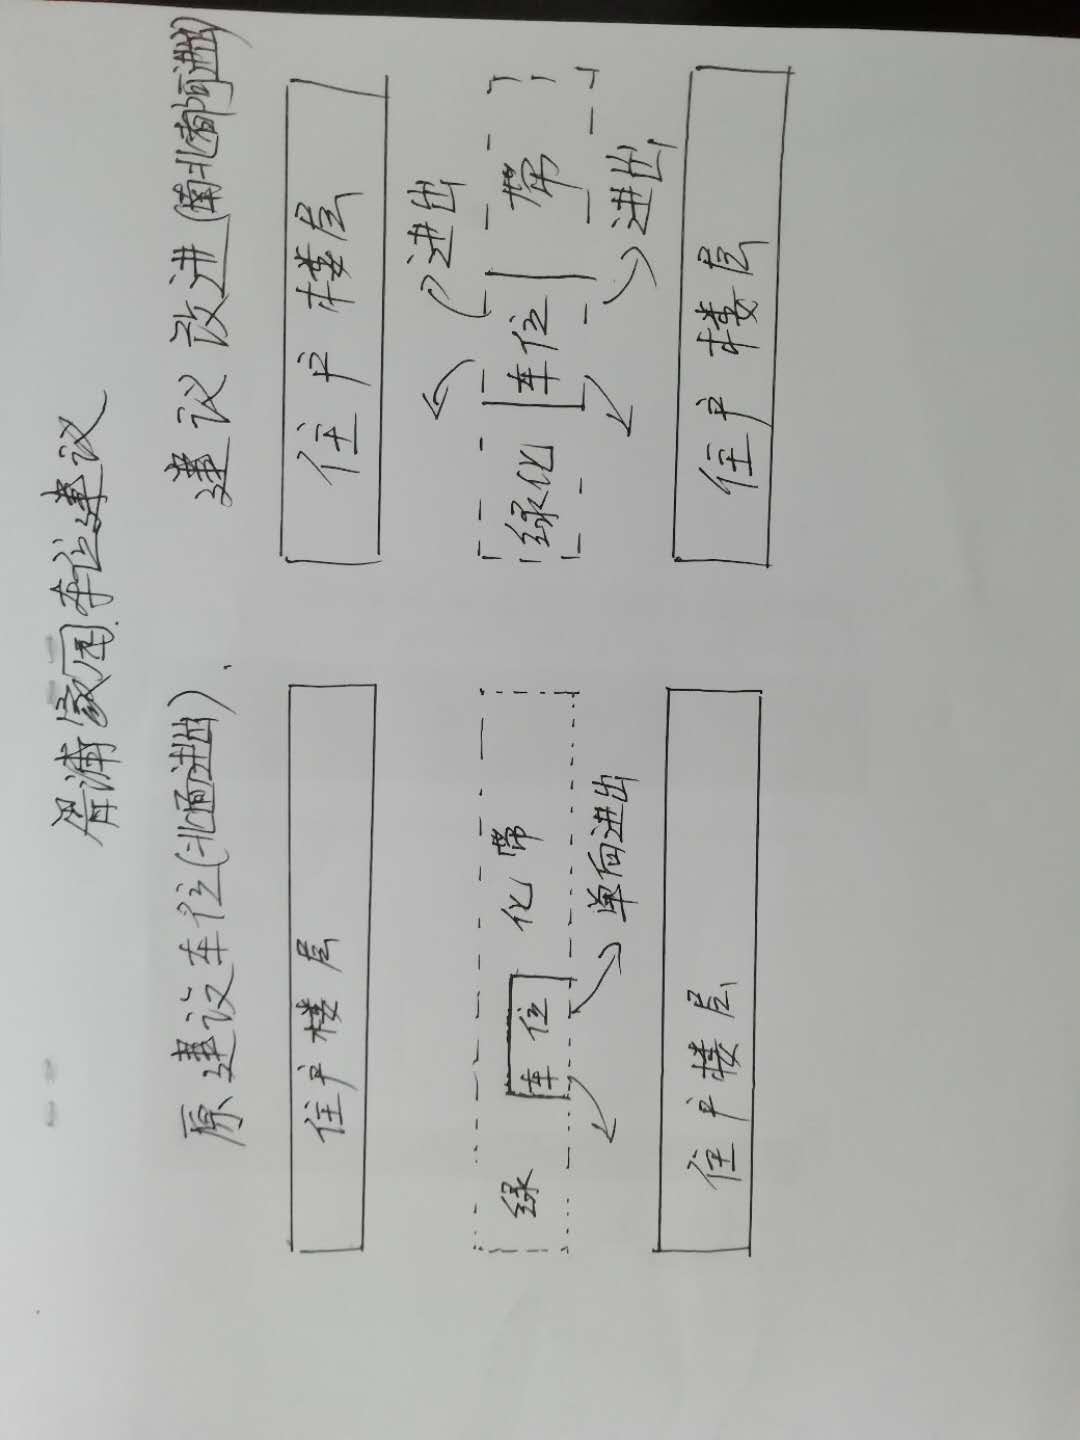 胥浦家园车位建议
原建议车位(北面进出)
住户楼层
绿 车位 化带
单向进出
住户楼层
建议改进(南北都可进出)
住户楼层
进出
绿化 车位 带
进出
住户楼层